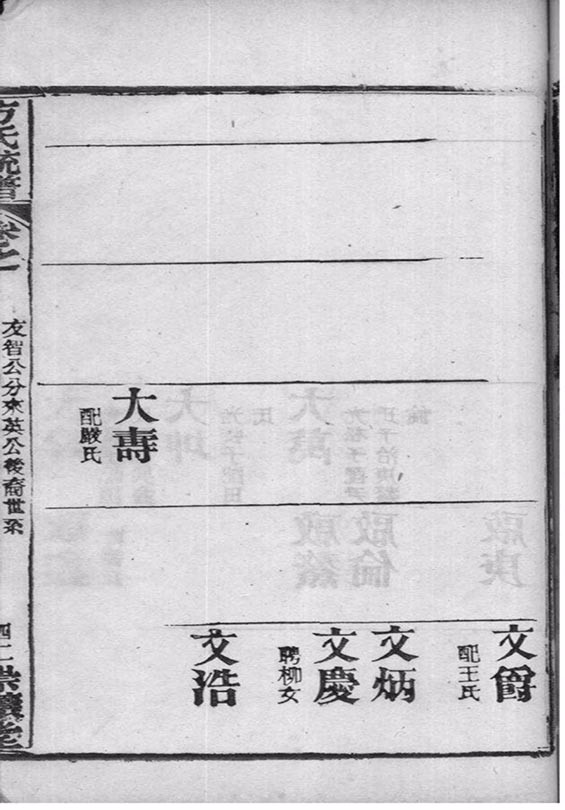 文爵
配王氏
文炳
文慶
聘柳女
文浩
大壽
配嚴氏
方氏統普
卷之一
友智公分來英公後裔世系
四二